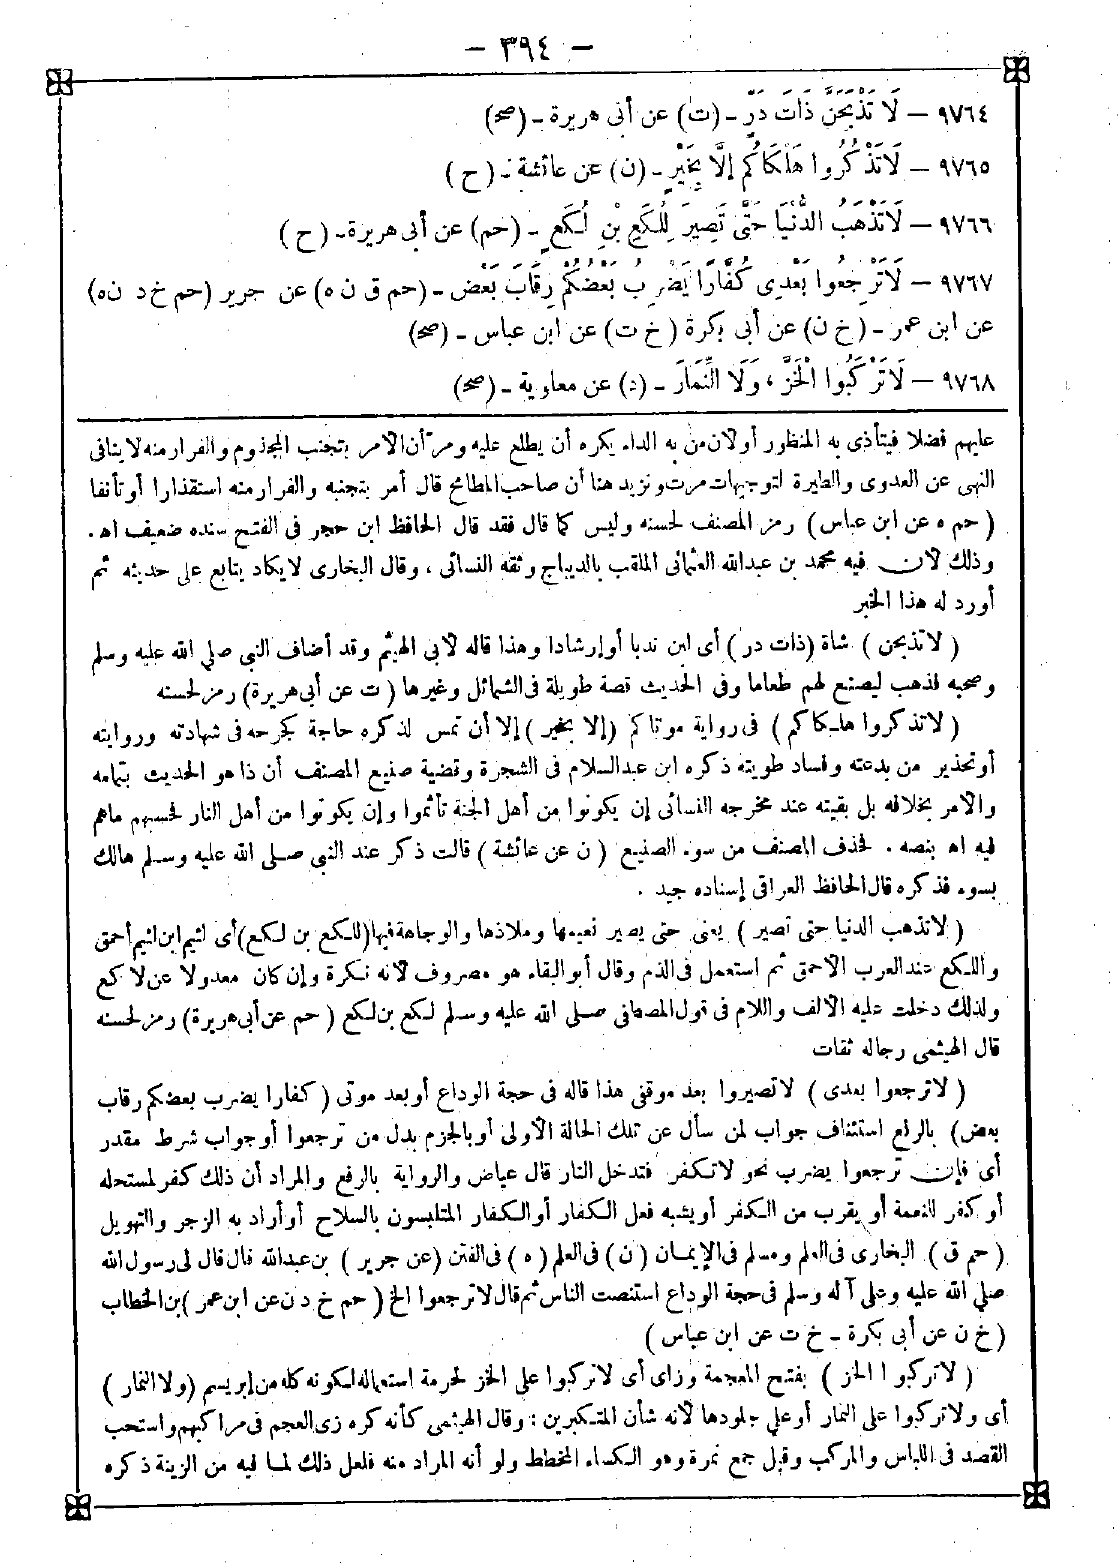 - ٣٩٤ -
٩٧٦٤ - لَا تَذْبَحَنَّ ذَاتَ دَرٍّ - (ت) عن أبى هريرة - (صح)
٩٧٦٥ - لَاتَذْكُرُوا هَلْكَاكُمْ إِلَّا بِخَيْرٍ - (ن) عن عائشة - (ح)
٩٧٦٦ - لَاتَذْهَبُ الدُّنْيَا حَتَّى تَصِيرَ لِلُكَعِ بْنِ لُكَعٍ - (حم) عن أبى هريرة - (ح)
٩٧٦٧ - لَاتَرْجِعُوا بَعْدِى كُفَّارًا يَضْرِبُ بَعْضُكُمْ رِقَابَ بَعْضٍ - (حم ق ن ه) عن جرير (حم خ د ن ه)
عن ابن عمر - (خ ن) عن أبى بكرة (خ ت) عن ابن عباس - (صح)
٩٧٦٨ - لَاتَرْكَبُوا الْخَزَّ ، وَلَا النِّمَارَ - (د) عن معاوية - (صح)
عليهم فضلا فيتأذى به المنظور أولان من به الداء يكره أن يطلع عليه ومر أن الامر بتجنب المجذوم والفرار منه لاينافى
النهى عن العدوى والطيرة لتوجيهات مرت ونزيد هنا أن صاحب المطامح قال أمر بتجنبه والفرار منه استقذارا أو تأنفا
(حم ه عن ابن عباس) رمز المصنف لحسنه وليس كما قال فقد قال الحافظ ابن حجر فى الفتح سنده ضعيف اه .
وذلك لأن فيه محمد بن عبدالله العثمانى الملقب بالديباج وثقه النسائى ، وقال البخارى لا يكاد يتابع على حديثه ثم
أورد له هذا الخبر
(لاتذبحن) شاة (ذات در) أى لبن ندبا أو إرشادا وهذا قاله لابى الهيثم وقد أضاف النبي صلى الله عليه وسلم
وصحبه فذهب ليصنع لهم طعاما وفى الحديث قصة طويلة فى الشمائل وغيرها (ت عن أبى هريرة) رمز لحسنه
(لاتذكروا هلكاكم) فى رواية موتاكم (إلا بخير) إلا أن تمس لذكره حاجة كجرحه فى شهادته وروايته
أو تحذير من بدعته وفساد طويته ذكره ابن عبدالسلام فى الشجرة وقضية صنيع المصنف أن ذا هو الحديث بتمامه
والامر بخلافه بل بقيته عند مخرجه النسائى إن يكونوا من أهل الجنة تأثموا وإن يكونوا من أهل النار فحسبهم ماهم
فيه اه بنصه . فحذف المصنف من سوء الصنيع (ن عن عائشة) قالت ذكر عند النبي صلى الله عليه وسلم هالك
بسوء فذكره قال الحافظ العراقى إسناده جيد .
(لاتذهب الدنيا حتى تصير) يعنى حتى يصير نعيمها وملاذها والوجاهة فيها (للكع بن لكع) أى لئيم ابن لئيم أحمق
واللكع عند العرب الأحمق ثم استعمل فى الذم وقال أبو البقاء هو مصروف لأنه نكرة وإن كان معدولا عن لاكع
ولذلك دخلت عليه الألف واللام فى قول المصطفى صلى الله عليه وسلم لكع بن لكع (حم عن أبى هريرة) رمز لحسنه
قال الهيثمى رجاله ثقات
(لاترجعوا بعدى) لاتصيروا بعد موقفى هذا قاله فى حجة الوداع أو بعد موتى (كفارا يضرب بعضكم رقاب
بعض) بالرفع استئناف جواب لمن سأل عن تلك الحالة الأولى أو بالجزم بدل من ترجعوا أو جواب شرط مقدر
أى فإن ترجعوا يضرب نحو لاتكفر فتدخل النار قال عياض والرواية بالرفع والمراد أن ذلك كفر لمستحله
أو كفر للنعمة أو يقرب من الكفر أو يشبه فعل الكفار أو الكفار المتلبسون بالسلاح أو أراد به الزجر والتهويل
(حم ق) البخارى فى العلم ومسلم فى الإيمان (ن) فى العلم (ه) فى الفتن (عن جرير) بن عبدالله قال قال لى رسول الله
صلى الله عليه وعلى آله وسلم فى حجة الوداع استنصت الناس ثم قال لاترجعوا الخ (حم خ د ن عن ابن عمر) بن الخطاب
(خ ن عن أبى بكرة - خ ت عن ابن عباس)
(لاتركبوا الخز) بفتح المعجمة وزاى أى لاتركبوا على الخز لحرمة استعماله لكونه كله من إبريسم (ولا النمار)
أى ولاتركبوا على النمار أو على جلودها لأنه شأن المتكبرين : وقال الهيثمى كأنه كره زى العجم فى مراكبهم واستحب
القصد فى اللباس والمركب وقيل جمع نمرة وهو الكساء المخطط ولو أنه المراد منه فلعل ذلك لما فيه من الزينة ذكره